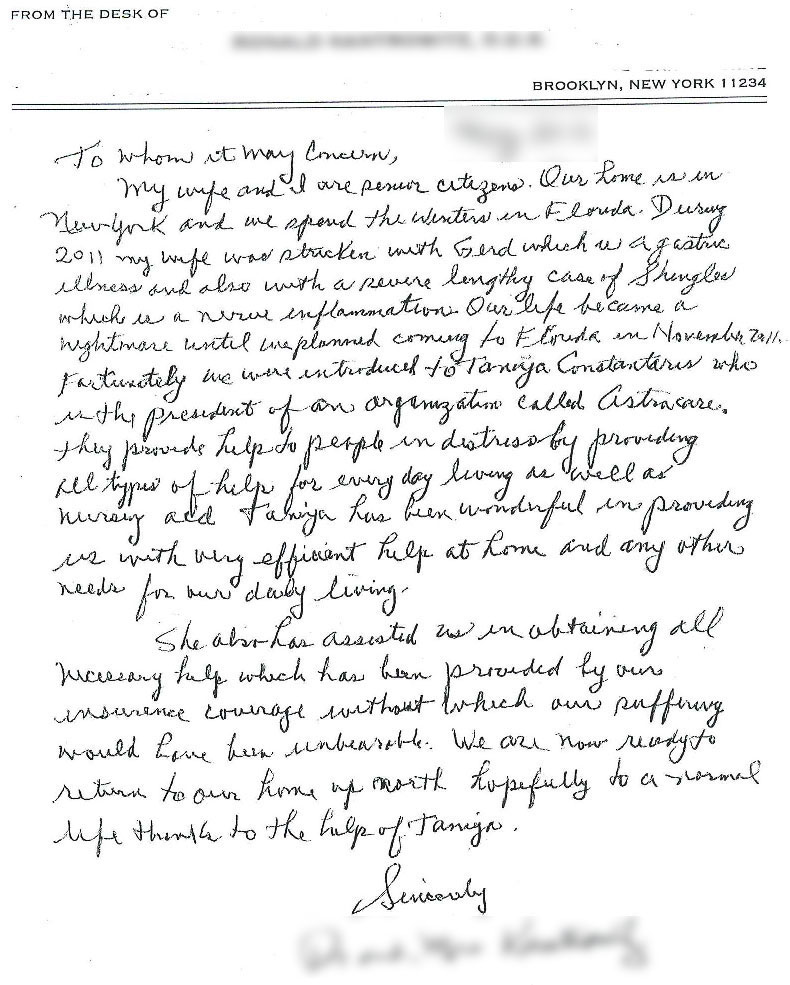 FROM THE DESK OF
BROOKLYN, NEW YORK 11234
To Whom it May Concern,
My wife and I are senior citizens. Our home is in
New York and we spend the winters in Florida. During
2011 my wife was stricken with Gerd which is a gastric
illness and also with a severe lengthy case of Shingles
which is a nerve inflammation. Our life became a
nightmare until we planned coming to Florida in November 2011.
Fortunately we were introduced to Taniya Constantaris who
is the president of an organization called Astracare.
They provide help to people in distress by providing
all types of help for every day living as well as
nursing and Taniya has been wonderful in providing
us with very efficient help at home and any other
needs for our daily living.
She also has assisted us in obtaining all
necessary help which has been provided by our
insurence coverage without which our suffering
would have been unbearable. We are now ready to
return to our home up north hopefully to a normal
life thanks to the help of Taniya.
Sincerely